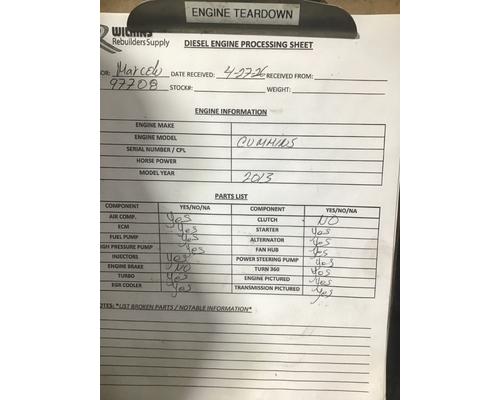 ENGINE TEARDOWN
WILKINS
Rebuilders Supply
DIESEL ENGINE PROCESSING SHEET
OR: Marcelo DATE RECEIVED: 4-27-26 RECEIVED FROM:
97708 STOCK#: WEIGHT:
ENGINE INFORMATION
ENGINE MAKE
ENGINE MODEL CUMMINS
SERIAL NUMBER / CPL
HORSE POWER
MODEL YEAR 2013
PARTS LIST
COMPONENT YES/NO/NA COMPONENT YES/NO/NA
AIR COMP. Yes CLUTCH NO
ECM Yes STARTER Yes
FUEL PUMP Yes ALTERNATOR Yes
HIGH PRESSURE PUMP Yes FAN HUB Yes
INJECTORS Yes POWER STEERING PUMP Yes
ENGINE BRAKE NO TURN 360 Yes
TURBO Yes ENGINE PICTURED Yes
EGR COOLER Yes TRANSMISSION PICTURED Yes
NOTES: *LIST BROKEN PARTS / NOTABLE INFORMATION*